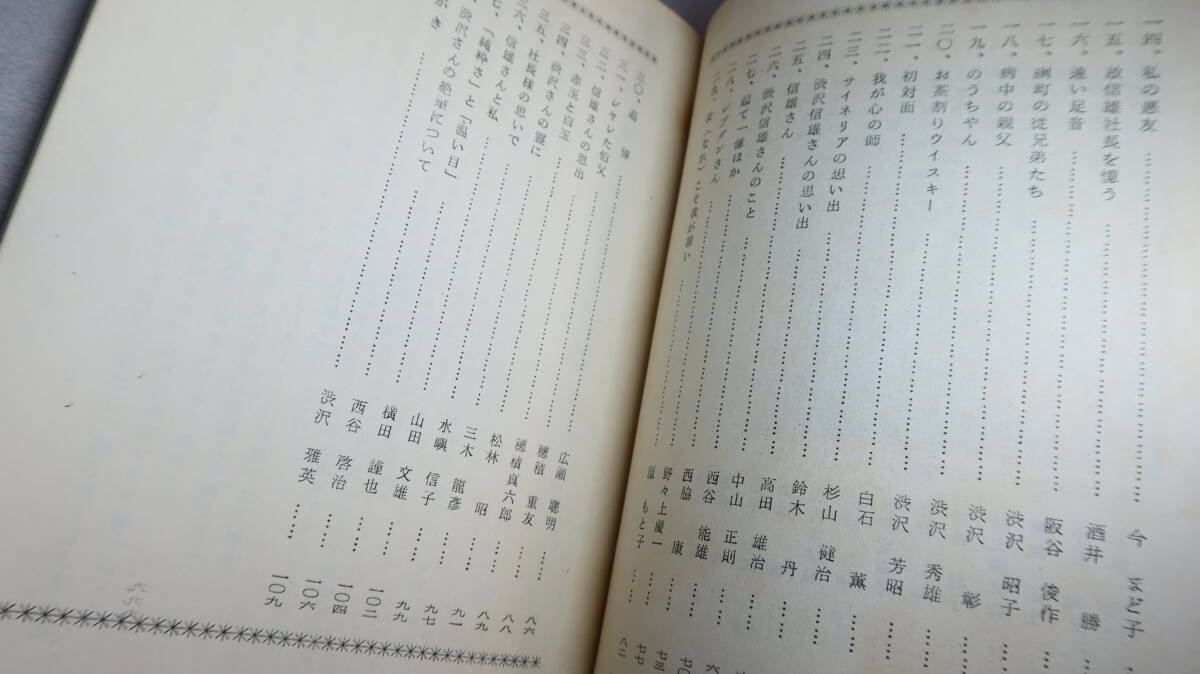 一四、私の悪友 …… 今 まど子
一五、故信雄社長を憶う …… 酒井 勝
一六、遠い足音 …… 阪谷 俊作
一七、綱町の従兄弟たち …… 渋沢 昭子
一八、病中の親父 …… 渋沢 彰
一九、のうちやん …… 渋沢 秀雄
二〇、お茶割りウイスキー …… 渋沢 芳昭
二一、初対面 …… 白石 薫
二二、我が心の師 …… 杉山 健治
二三、サイネリアの想い出 …… 鈴木 丹
二四、渋沢信雄さんの思い出 …… 高田 雄治
二五、信雄さん …… 中山 正則 …… 六
二六、渋沢信雄さんのこと …… 西谷 能雄 …… 七〇
二七、起て一億ほか …… 西脇 康 …… 七三
二八、さん …… 野々上慶一 …… 七七
二九、汝(なれ)こそ我が願い …… 原 もと子 …… 八二
三〇、追悼 …… 広瀬 聰明 …… 八六
三一、シヤレた伯父 …… 穂積 重友 …… 八八
三二、信雄さんの思出 …… 穂積真六郎 …… 八九
三三、赤玉と白玉 …… 松林 昭 …… 九一
三四、渋沢さんの霊に …… 三木 龍彦 …… 九七
三五、社長様の思いで …… 水嶼 信子 …… 九九
三六、信雄さんと私 …… 山田 文雄 …… 一〇二
七、「純粋さ」と「温い目」 …… 横田 謹也 …… 一〇四
渋沢さんの絶筆について …… 西谷 啓治 …… 一〇六
がき …… 渋沢 雅英 …… 一〇九